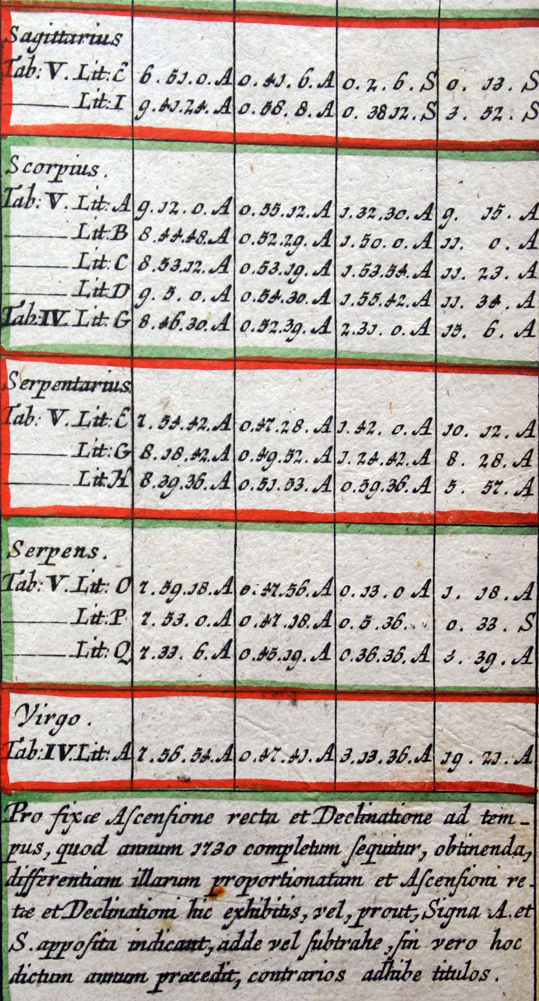 Sagittarius
Tab: V. Lit: E 6.51.0.A 0.41.6.A 0.2.6.S 0. 13. S
Lit: I 9.41.24.A 0.58.8.A 0.3812.S 3. 52. S
Scorpius.
Tab: V. Lit: A 9.12.0.A 0.55.12.A 1.32.30.A 9. 15. A
Lit: B 8.44.48.A 0.52.29.A 1.50.0.A 11. 0. A
Lit: C 8.53.12.A 0.53.19.A 1.53.54.A 11. 23. A
Lit: D 9.5.0.A 0.54.30.A 1.55.42.A 11. 34. A
Tab: IV. Lit: G 8.46.30.A 0.52.39.A 2.31.0.A 15. 6. A
Serpentarius
Tab: V. Lit: E 7.54.42.A 0.47.28.A 1.42.0.A 10. 12. A
Lit: G 8.18.42.A 0.49.52.A 1.24.42.A 8. 28. A
Lit: H 8.39.36.A 0.51.53.A 0.59.36.A 5. 57. A
Serpens.
Tab: V. Lit: O 7.59.18.A 0.47.56.A 0.13.0.A 1. 18. A
Lit: P 7.53.0.A 0.47.18.A 0.5.36. 0. 33. S
Lit: Q 7.33.6.A 0.45.19.A 0.36.36.A 3. 39. A
Virgo.
Tab: IV. Lit: A 7.56.54.A 0.47.41.A 3.13.36.A 19. 21. A
Pro fixæ Ascensione recta et Declinatione ad tem-
pus, quod annum 1730 completum sequitur, obtinenda,
differentiam illarum proportionatam et Ascensioni re-
tæ et Declinationi hic exhibitis, vel, prout, Signa A. et
S. apposita indicant, adde vel subtrahe, sin vero hoc
dictum annum præcedit, contrarios adhibe titulos.